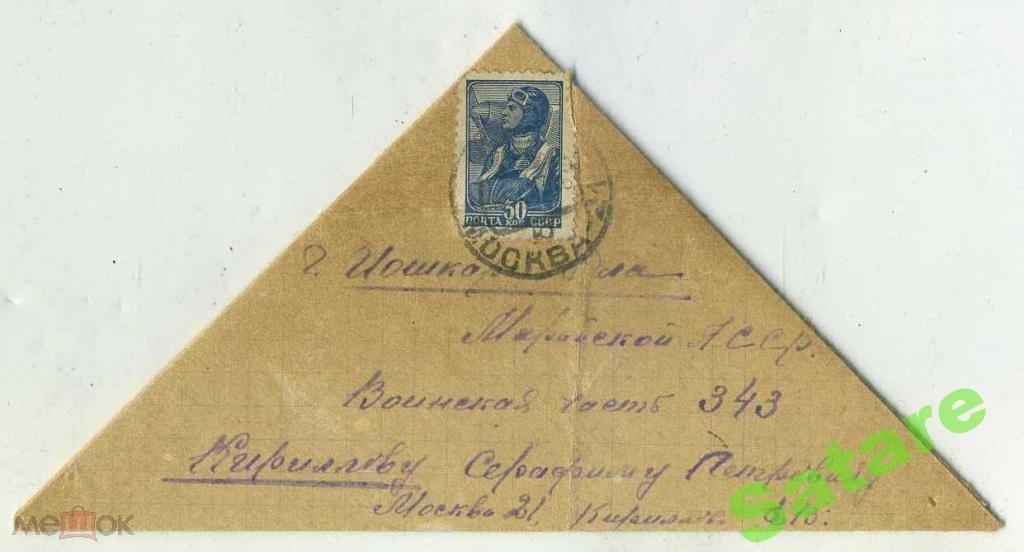 30
ПОЧТА КОП СССР
МОСКВА-21
г. Йошкар Ола
Марийской АССР.
Воинская часть 343
Кириллову Серафиму Петровичу
Москва 21, Кириллов
мешок
satare